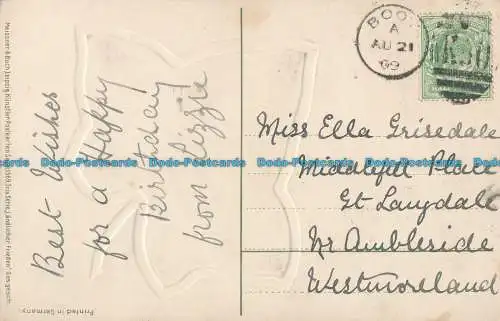 Best Wishes
for a Happy
Birthday
from Lizzie
Miss Ella Grisedale
Middlefell Place
Gt Langdale
Nr Ambleside
Westmoreland
BOOT
A
AU 21
09
Printed in Germany.
Meissner & Buch, Leipzig Künstler-Postkarten Serie
Dodo-Postcards Dodo-Postcards Dodo-Postcards Dodo-Postcards Dodo-Postcards